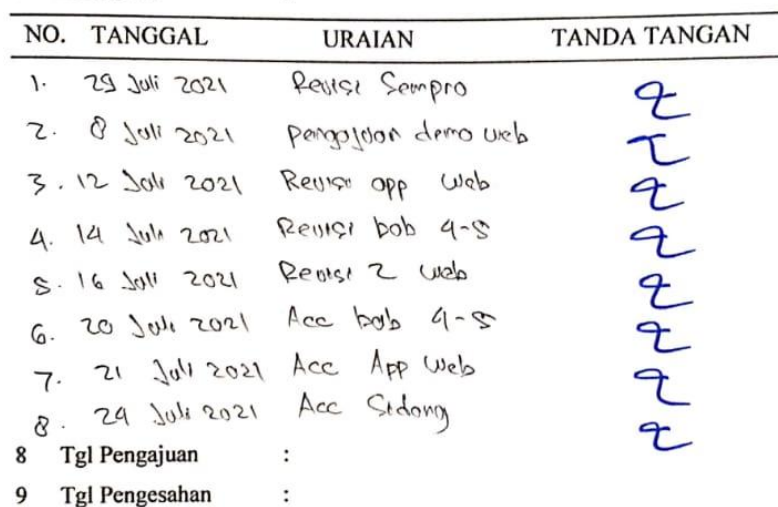 NO. TANGGAL URAIAN TANDA TANGAN
1. 29 Juli 2021 Revisi Sempro
2. 8 Juli 2021 Pengajuan demo web
3. 12 Juli 2021 Revisi app web
4. 14 Juli 2021 Revisi bab 4-5
5. 16 Juli 2021 Revisi 2 web
6. 20 Juli 2021 Acc bab 4-5
7. 21 Juli 2021 Acc App Web
8. 24 Juli 2021 Acc Sidang
8 Tgl Pengajuan :
9 Tgl Pengesahan :